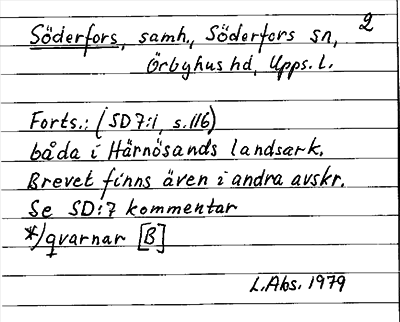 Söderfors, samh., Söderfors sn, 2
Örbyhus hd, Upps. l.
Forts.: (SD 7:1, s. 116)
båda i Härnösands landsark.
Brevet finns även i andra avskr.
Se SD:7 kommentar
*/qvarnar [B]
L. Abs. 1979